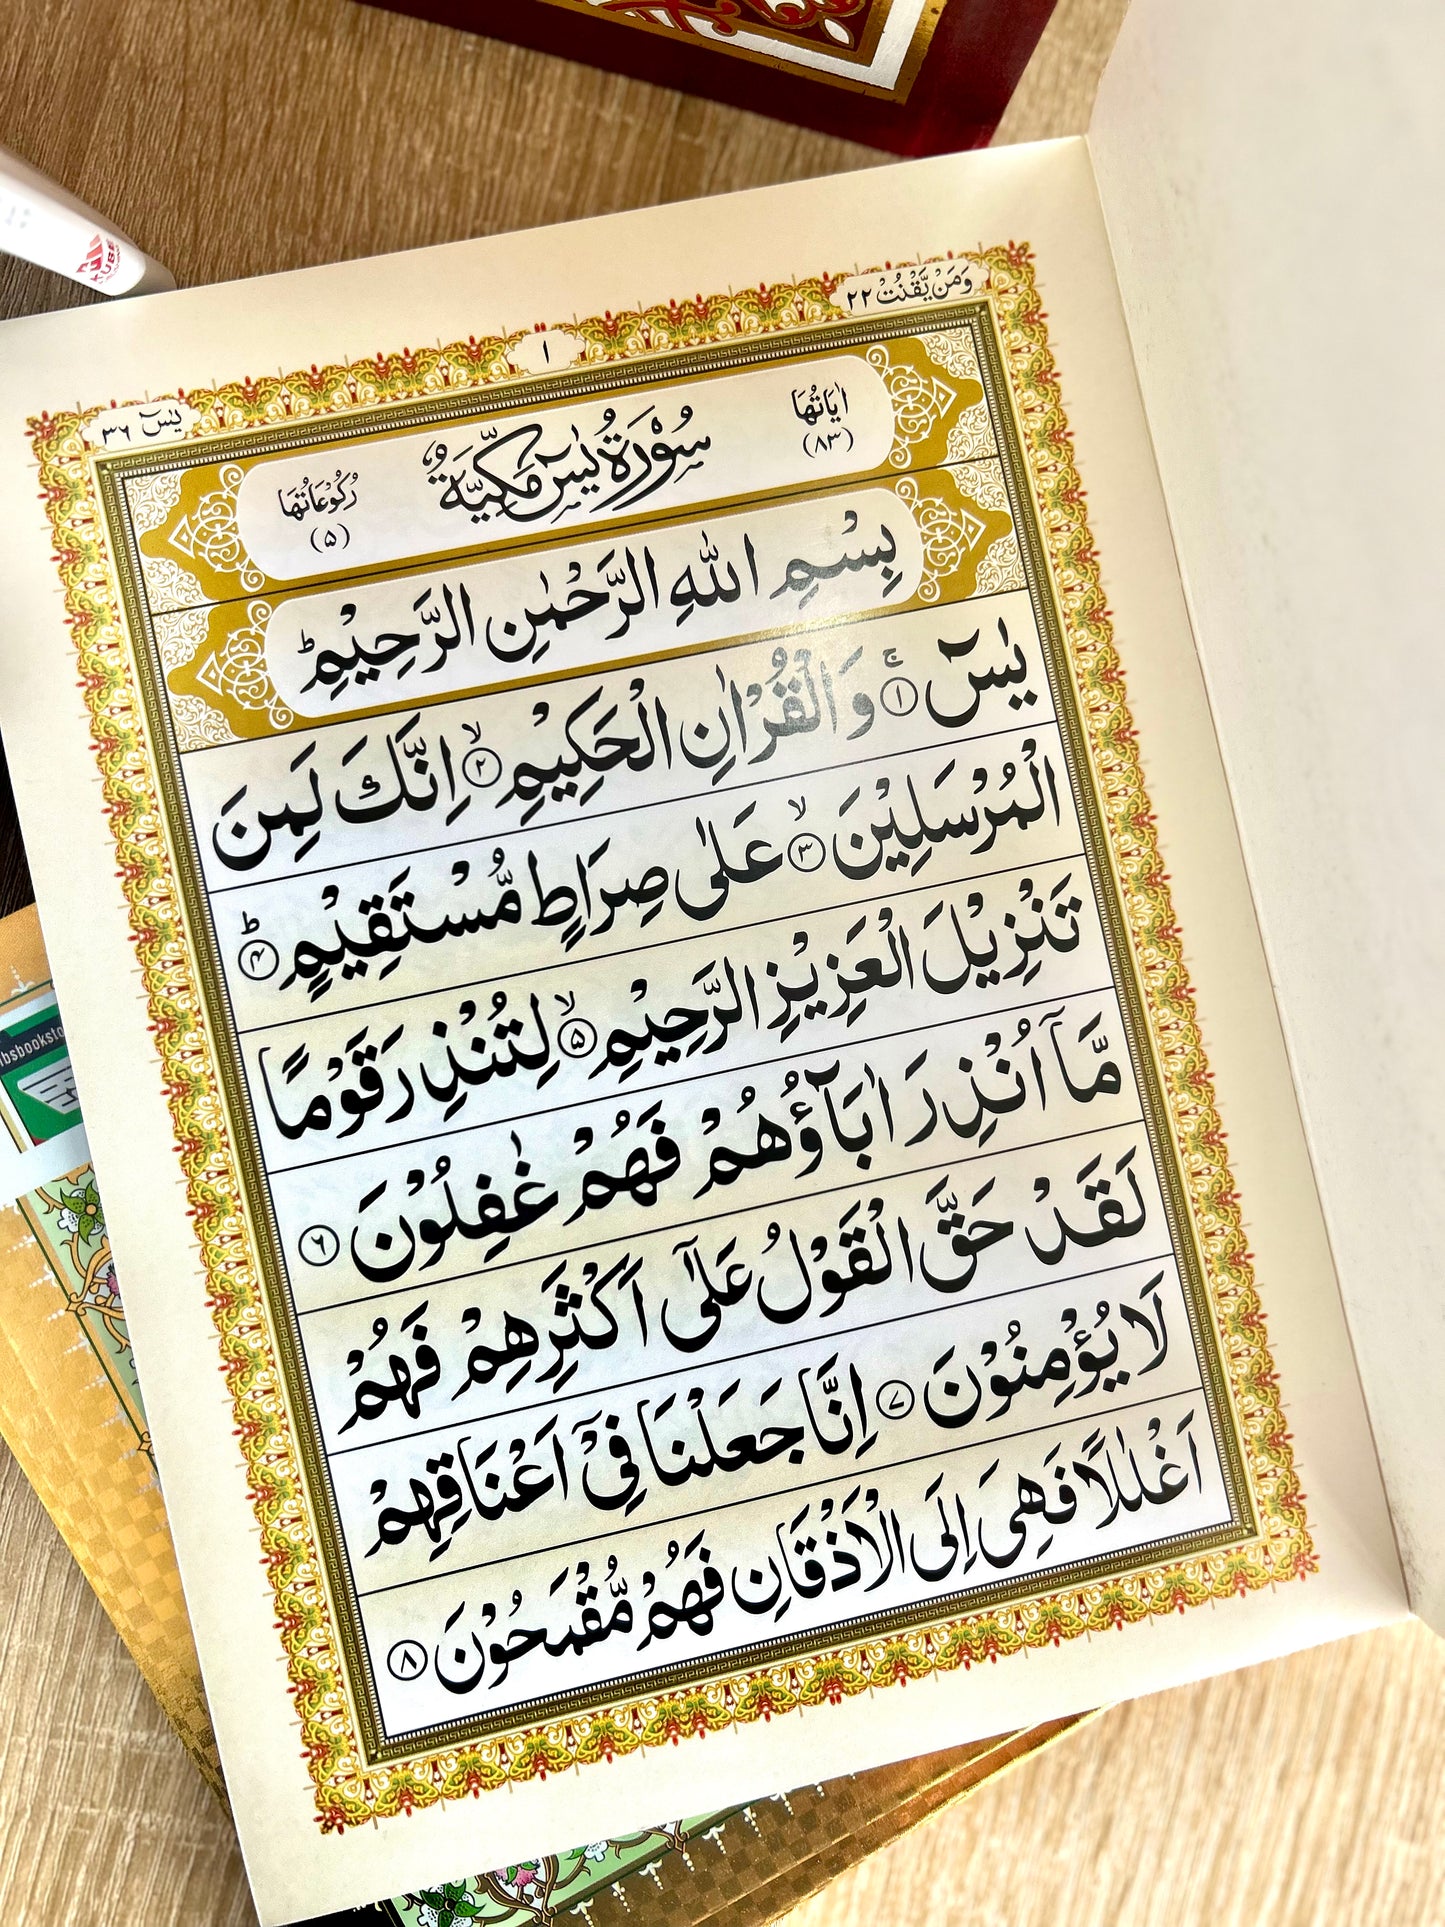 وَمَنۡ يَّقۡنُتۡ ٢٢
١
يٰسٓ ٣٦
اٰيَاتُهَا
(٨٣)
سُوۡرَةُ يٰسٓ مَكِّيَّةٌ
رُكُوۡعَاتُهَا
(۵)
بِسۡمِ اللّٰهِ الرَّحۡمٰنِ الرَّحِيۡمِؕ
يٰسٓ ۚ‏﴿۱﴾ وَالۡقُرۡاٰنِ الۡحَكِيۡمِ ۙ‏﴿۲﴾ اِنَّكَ لَمِنَ
الۡمُرۡسَلِيۡنَ ۙ‏﴿۳﴾ عَلٰى صِرَاطٍ مُّسۡتَقِيۡمٍ ؕ‏﴿۴﴾
تَنۡزِيۡلَ الۡعَزِيۡزِ الرَّحِيۡمِ ۙ‏﴿۵﴾ لِتُنۡذِرَ قَوۡمًا
مَّاۤ اُنۡذِرَ اٰبَآؤُهُمۡ فَهُمۡ غٰفِلُوۡنَ ﴿۶﴾
لَقَدۡ حَقَّ الۡقَوۡلُ عَلٰٓى اَكۡثَرِهِمۡ فَهُمۡ
لَا يُؤۡمِنُوۡنَ ﴿۷﴾ اِنَّا جَعَلۡنَا فِىۡۤ اَعۡنَاقِهِمۡ
اَغۡلٰلًا فَهِىَ اِلَى الۡاَذۡقَانِ فَهُمۡ مُّقۡمَحُوۡنَ ﴿۸﴾
KUBE